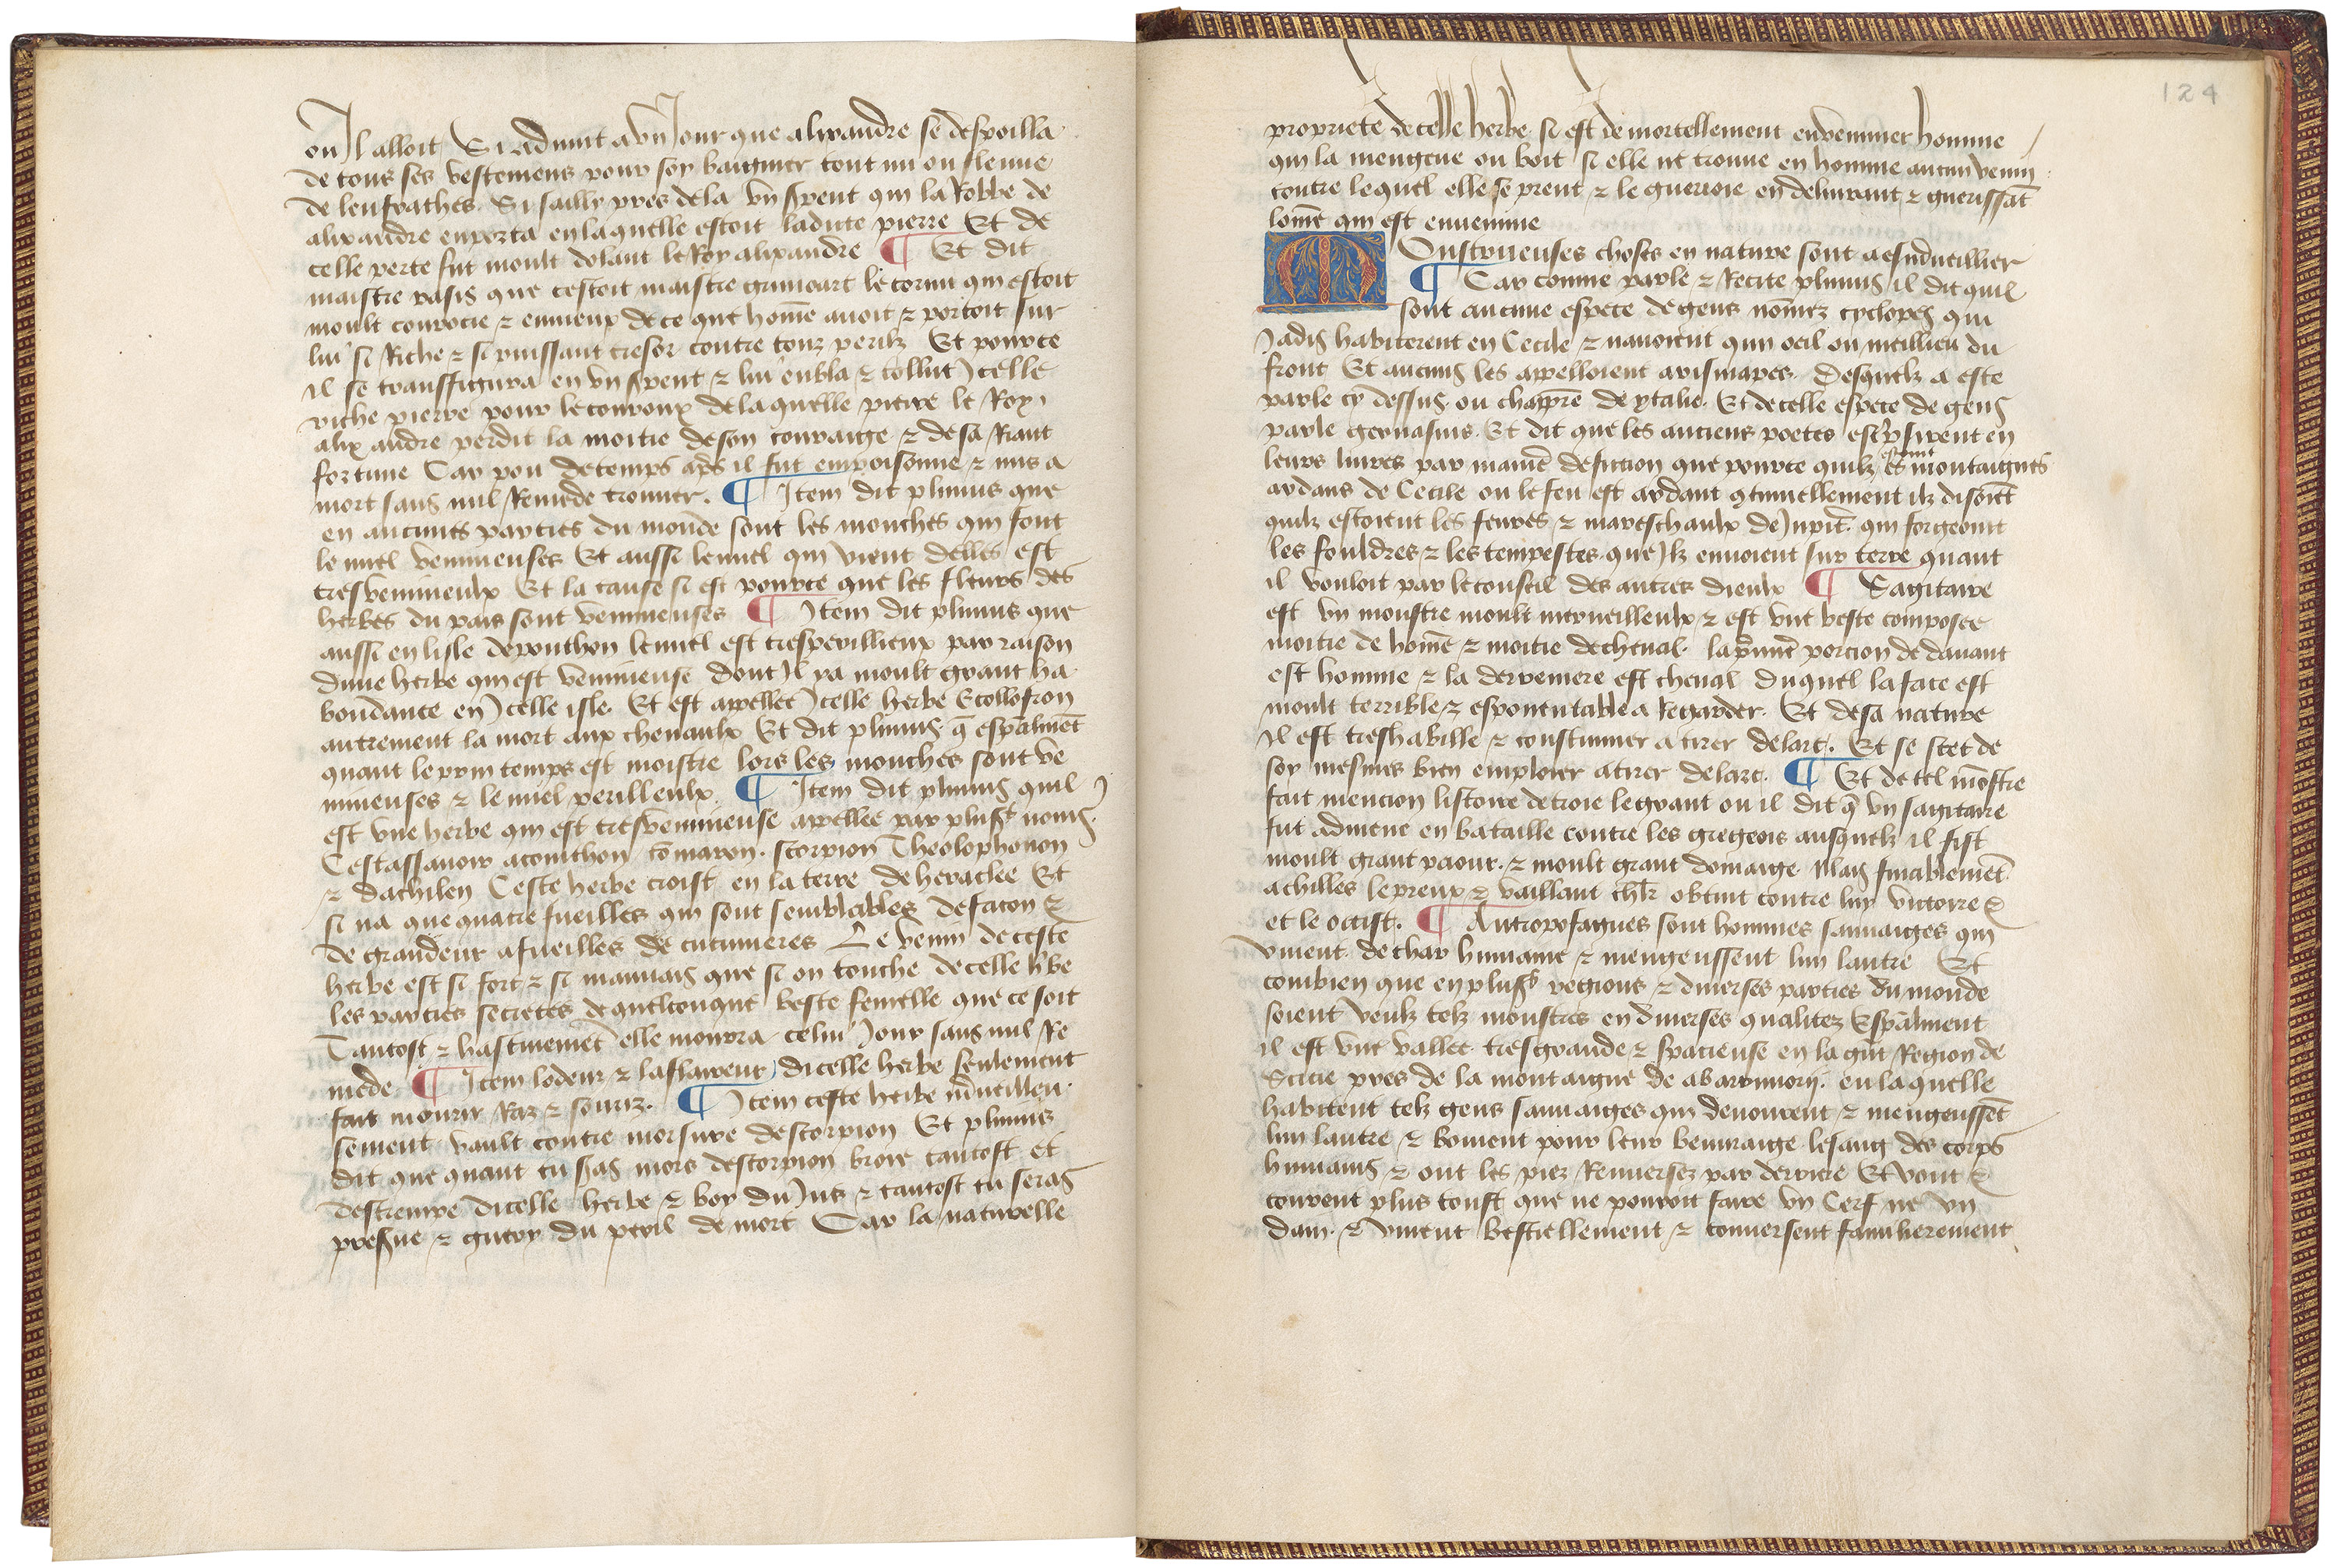 ou Il alloit Si aduint a vn Jour que alixandre se despoilla
de tous ses vestemens pour soy baignier tout nu ou fleuue
de leufrathes. Si sailly pres de la vn spent qui la Robbe de
alixandre enporta en laquelle estoit ladicte pierre Et de
celle perte fut moult dolant le Roy alixandre ¶ Et dit
maistre rasis que cestoit maistre grimoart le cornu qui estoit
moult couroucie & enuieux de ce que home auoit & portoit sur
lui si Riche & si puissant tresor contre touz perilz Et pource
il se transfigura en vn spent & lui enbla & tollut Icelle
riche pierre pour le couroux de laquelle pierre le Roy
alixandre perdit la moitie de son couraige & de sa Riant
fortune Car pou de temps aps il fut empoisonne & mis a
mort sans nul Remede trouuer. ¶ Item dit plinius que
en aucunes parties du monde sont les mouches qui font
le miel venimeuses Et aussi le miel qui vient delles est
tresvenimeulx Et la cause si est pource que les fleurs des
herbes du pais sont venimeuses ¶ Item dit plinius que
aussi en lisle de ponthon le miel est tresperillieux par raison
dune herbe qui est venimieuse dont Il ya moult grant ha
bondance en Icelle isle. Et est appellee Icelle herbe Ecollofron
autrement la mort aux cheuaulx Et dit plinius q espalment
quant le prin temps est moistre lors les mouches sont ve
nimeuses & le miel perilleulx. ¶ Item dit plinius quil
est vne herbe qui est tresvenimeuse appellee par plus noms
Cest assauoir aconithon comaron. scorpion Theolophonon
& dachilen Ceste herbe croist en la terre de heraclee Et
si na que quatre fueilles qui sont semblables de facon &
de grandeur a fueilles de cucumeres Le venin de ceste
herbe est si fort & si mauuais que si on touche de celle hbe
les parties secretes de quelconque beste femelle que ce soit
Tantost & hastiuement elle mourra celui Jour sans nul Re
mede ¶ Item lodeur & laflaireur dicelle herbe seulement
fait mourir Raz & souriz. ¶ Item ceste herbe mueilleu
sement vault contre morsure de scorpion Et plinius
dit que quant tu sas mors de scorpion broie tantost et
destrempe dicelle herbe & boy du Jus & tantost tu seras
preserue & guery du peril de mort Car la naturelle
124
propriete de celle herbe si est de mortellement envenimer homme
qui la mengeue ou boit si elle ne trouue en homme aucun venin
contre lequel elle se prent & le guerroie en deliurant & guerissat
lome qui est enuenime
Monstrueuses choses en nature sont a esmdueillier
¶ Car comme parle & Recite plinius il dit quil
sont aucune espece de gens nomez cyclopes qui
Jadis habiterent en Cecile & nauoient qun oeil ou meillieu du
front Et aucuns les appelloient arismapes. Desquelz a este
parle cy dessus. ou chappre de ytalie. Et de celle espece de gens
parle geruasius. Et dit que les anciens poetes escpsirent en
leurs liures par maniere de fiction que pource quilz es montaignes
ardans de Cecile ou le feu est ardant gtinuellement ilz disoiet
quilz estoient les feures & mareschaulx de Jupit. qui forgeoint
les fouldres & les tempestes que Ilz enuoient sur terre quant
il vouloit par le conseil des autres dieulx ¶ Sagitaire
est vn monstre moult merueilleulx & est vne beste composee
moitie de home & moitie de cheual. la pmiere porcion de dauant
est homme & la derreniere est cheual duquel la face est
moult terrible & espouentable a Regarder. Et de sa nature
Il est treshabille & coustumier a tirer de larc. Et se scet de
soy mesmes bien emploier a tirer de larc. ¶ Et de tel mostre
fait mencion listoire de troie le grant ou il dit q vn sagitaire
fut admene en bataille contre les gregeois ausquelz il fist
moult grant paour. & moult grant domaige Mais finablemet
achilles le preux & vaillant chlr obtint contre luy victoire &
et le occist. ¶ Antropofagues sont hommes sauuaiges qui
viuent de char humaine & mengeussent lun lautre Et
combien que en plus regions & diuerses parties du monde
soient veuz telz monstres en diuerses qualitez Espalment
il est vne vallee tresgrande & spacieuse en la gnt Region de
Sicie pres de la montaigne de abarrimory. en laquelle
habitent telz gens sauuaiges qui deuourent & mengeusset
lun lautre & boiuent pour leur beuuraige le sang des corps
humains & ont les piez Renuersez par derriere Et vont &
courent plus toust que ne pouroit faire vn Cerf ne vn
dam. & viuent bestiellement & conuersent familierement